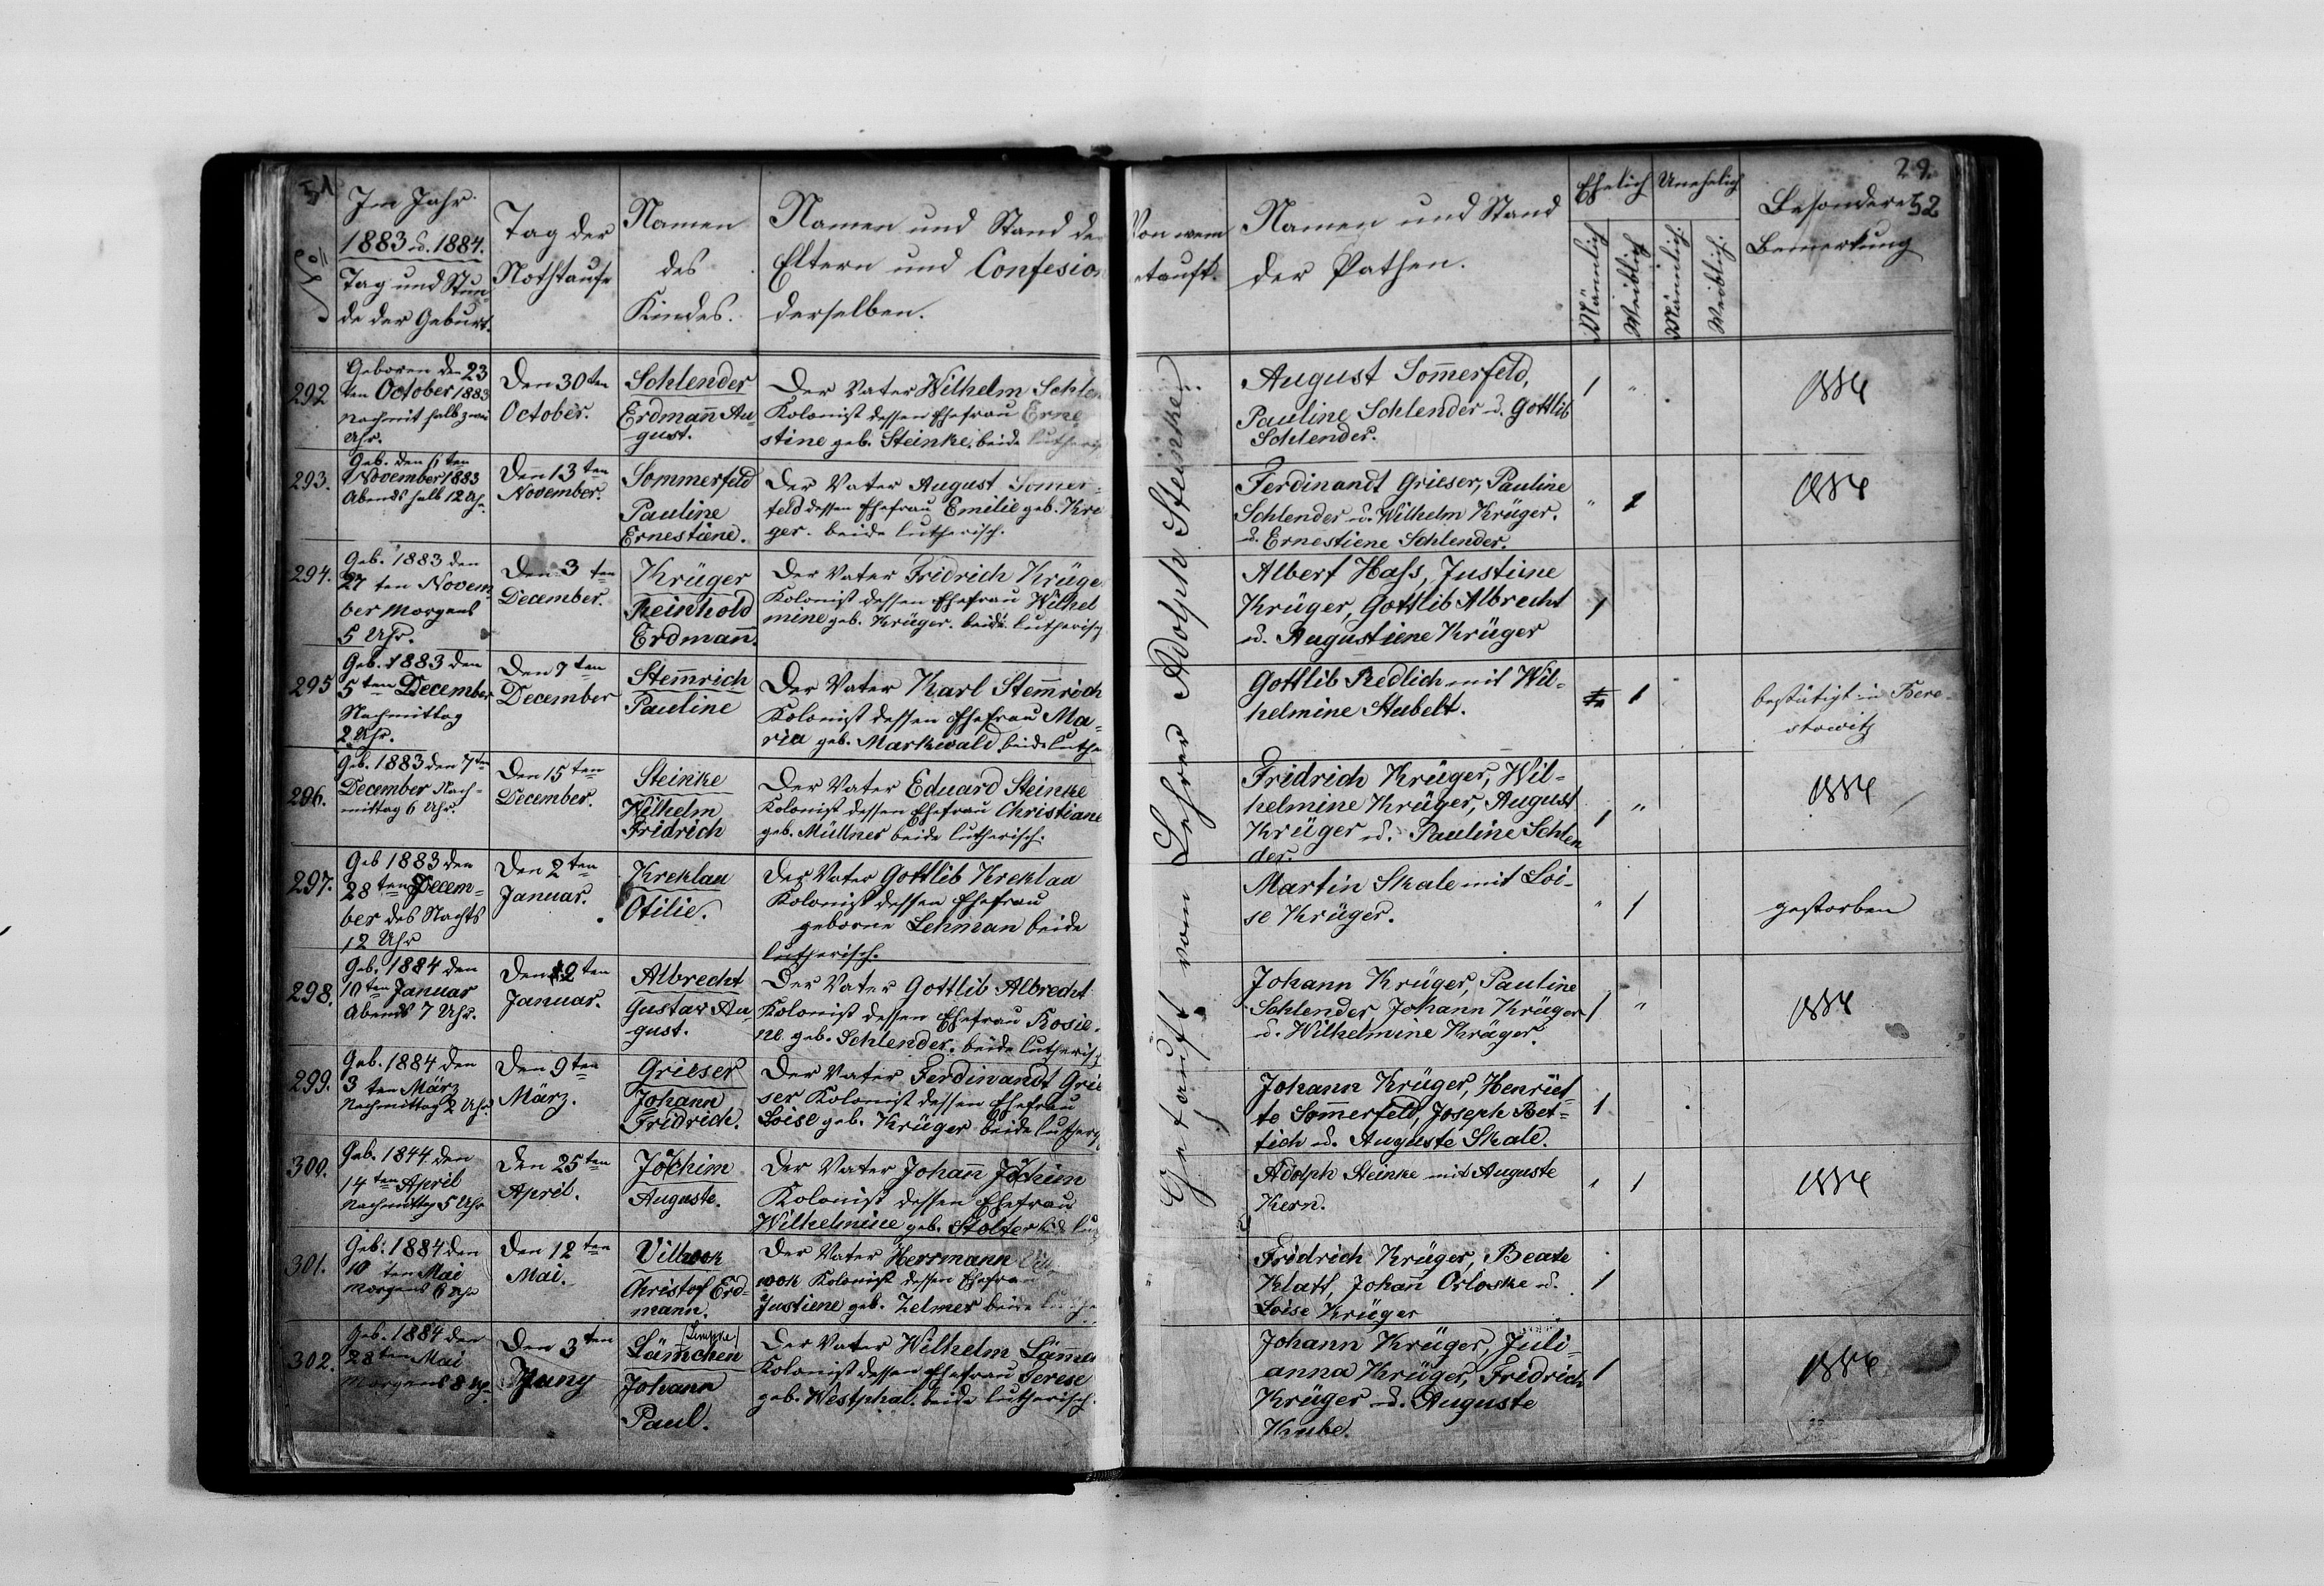 51
No
Im Jahr
1883 u. 1884.
Tag und Stun-
de der Geburt.
Tag der
Nothtaufe
Namen
des
Kindes.
Namen und Stand der
Eltern und Confesion
derselben.
292
Geboren den 23
ten October 1883
Nachmit halb zwei
Uhr.
Den 30ten
October.
Schlender
Erdmann Au-
gust.
Der Vater Wilhelm Schlen
Kolonist dessen Ehefrau Erne
stine geb. Steinke. beide lutherisch
293.
Geb. den 6ten
November 1883
Abends halb 12 Uhr.
Den 13ten
November.
Sommerfeld
Pauline
Ernestiene.
Der Vater August Somer-
feld dessen Ehefrau Emilie geb. Krü
ger. beide lutherisch.
294.
Geb. 1883 den
27 ten Novem
ber Morgens
5 Uhr.
Den 3 ten
December.
Krüger
Reinhold
Erdmann.
Der Vater Fridrich Krüge
Kolonist dessen Ehefrau Wilhel
mine geb. Krüger. beide lutherisch
295
Geb. 1883 den
5ten December
Nachmittag
2 Uhr.
Den 7ten
December
Stemrich
Pauline
Der Vater Karl Stemrich
Kolonist dessen Ehefrau Ma-
ria geb. Markwald beide luthe
296.
Geb. 1883 den 7ten
December Nach-
mittag 6 Uhr.
Den 15ten
December.
Steinke
Wilhelm
Fridrich
Der Vater Eduard Steinke
Kolonist dessen Ehefrau Christiane
geb. Müllner beide lutherisch.
297.
Geb 1883 den
28ten Decem-
ber des Nachts
12 Uhr
Den 2ten
Januar.
Kreklau
Otilie.
Der Vater Gottlib Kreklau
Kolonist dessen Ehefrau
geborne Lehman beide
lutherisch.
298.
Geb. 1884 den
10ten Januar
Abends 7 Uhr.
Den 12ten
Januar.
Albrecht
Gustav Au-
gust.
Der Vater Gottlib Albrecht
Kolonist dessen Ehefrau Rosie-
ne geb. Schlender. beide lutherisch
299.
Geb. 1884 den
3 ten März
Nachmittag 2 Uhr.
Den 9ten
März.
Grieser
Johann
Fridrich.
Der Vater Ferdinandt Grie
ser Kolonist dessen Ehefrau
Loise geb. Krüger beide luther
300.
Geb. 1844 den
14ten April
Nachmittag 5 Uhr
Den 25ten
April.
Jochim
Auguste.
Der Vater Johann Jochim
Kolonist dessen Ehefrau
Wilhelmine geb. Stolter beide lu
301.
Geb. 1884 den
10 ten Mai
Morgens 6 Uhr
Den 12ten
Mai.
Vilhook
Christof Erd-
mann.
Der Vater Herrmann
wok Kolonist dessen Ehefrau
Justiene geb. Zelmer beide luthe
302.
Geb. 1884 den
28ten Mai
Morgens 8 Uhr
Den 3ten
Juny
Lämchen
Johann
Paul.
Der Vater Wilhelm Lämm
Kolonist dessen Ehefrau Terese
geb. Westphal. beide lutherisch.
29.
52
Von wem
etauft.
Namen und Stand
der Pathen.
Ehelich
Unehelich
Mänlich
Weiblich
Mänlich.
Weiblich.
Besondere
Bemerkung
Getauft vom Lehrer Adolph Steinke
August Sommerfeld,
Pauline Schlender u. Gottlib
Schlender.
1 "
1884
Ferdinandt Grieser, Pauline
Schlender u. Wilhelm Krüger.
u. Ernestiene Schlender.
" 1
1884
Albert Hass, Justiene
Krüger, Gottlib Albrecht
u. Augustiene Krüger
1
Gottlib Redlich mit Wil-
helmine Stubelt.
1
bestätigt in Bere-
stowitz
Fridrich Krüger, Wil-
helmine Krüger, August
Krüger u. Pauline Schlen
der.
1 "
1884
Martin Skale mit Loi-
se Krüger.
" 1
gestorben
Johann Krüger, Pauline
Schlender, Johann Krüger
u. Wilhelmine Krüger.
1 "
1884
Johann Krüger, Henriet-
te Sommerfeld, Joseph Bet-
tich u. Auguste Skale.
1
Adolph Steinke mit Auguste
Kern.
" 1
1884
Fridrich Krüger, Beate
Klatt, Johann Orloske u.
Loise Krüger
1
Johann Krüger, Juli-
anna Krüger, Fridrich
Krüger u. Auguste
Kube.
1
1884